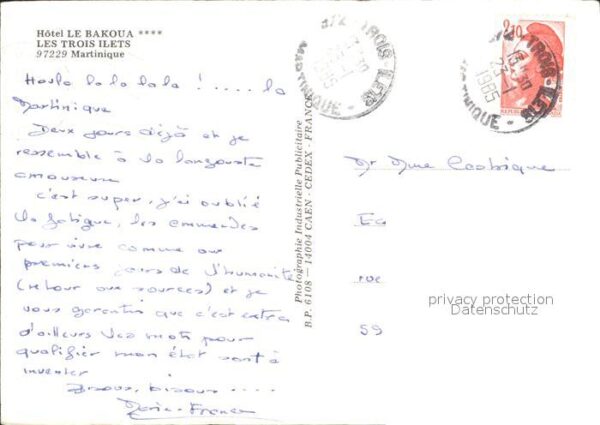 Hôtel LE BAKOUA ****
LES TROIS ILETS
97229 Martinique
Houla la la la la ! ..... la
Martinique
Deux jours déjà et je
ressemble à la langouste
amoureuse
c'est super, j'ai oublié
la fatigue, les emmerdes
pour vivre comme aux
premiers jours de l'humanité
(retour aux sources) et je
vous garantis que c'est extra
d'ailleurs les mots pour
qualifier mon état sont à
inventer
Bisous, bisous ....
Marie-France
Photographie Industrielle Publicitaire
B.P. 6108 — 14004 CAEN - CEDEX - FRANCE
972 - TROIS ILETS
13 - 30
23 - 1
1985
MARTINIQUE
2,10
972 - TROIS ILETS
13 - 30
23 - 1
1985
MARTINIQUE
Mr Mme
rue
59
privacy protection
Datenschutz